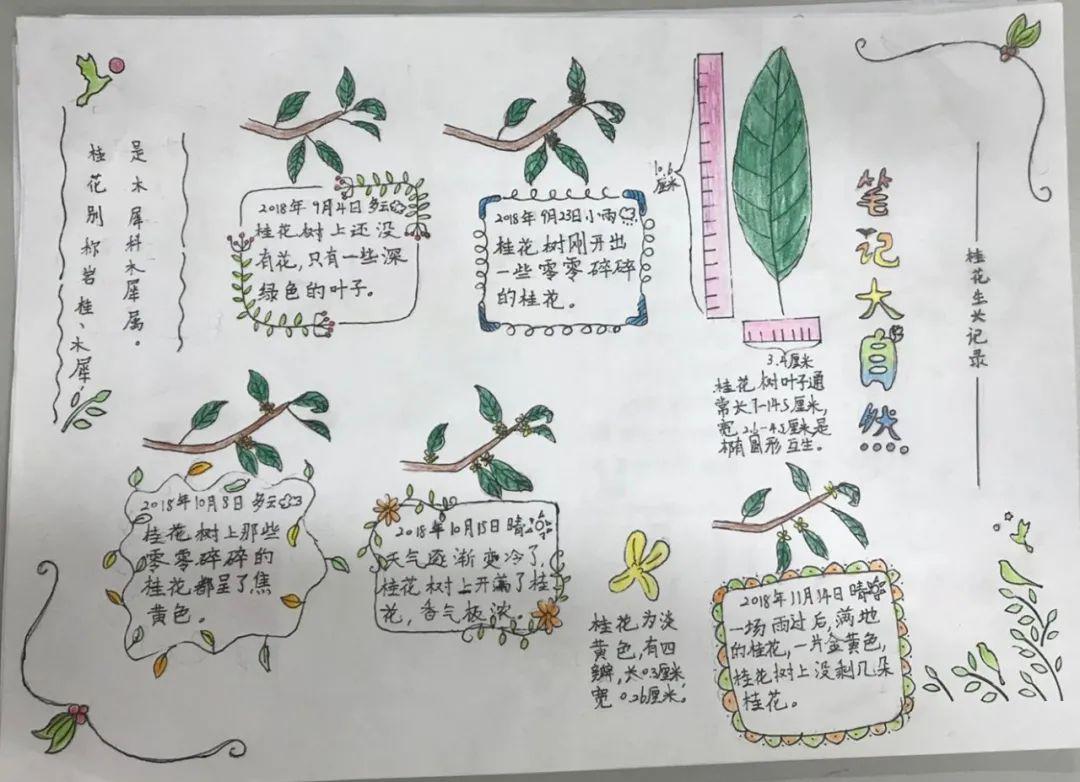 笔记大自然
桂花生长记录
桂花别称岩桂、木犀,
是木犀科木犀属。
2018年9月4日多云
桂花树上还没
有花,只有一些深
绿色的叶子。
2018年9月23日小雨
桂花树刚开出
一些零零碎碎
的桂花。
10.6
厘米
3.4厘米
桂花树叶子通
常长7-14.5厘米,
宽2.6-4.5厘米是
椭圆形互生。
2018年10月8日多云
桂花树上那些
零零碎碎的
桂花都呈了焦
黄色。
2018年10月15日晴
天气逐渐变冷了,
桂花树上开满了桂
花,香气极浓。
桂花为淡
黄色,有四
瓣,长0.3厘米,
宽0.26厘米,
2018年11月14日晴
一场雨过后,满地
的桂花,一片金黄色,
桂花树上没剩几朵
桂花。